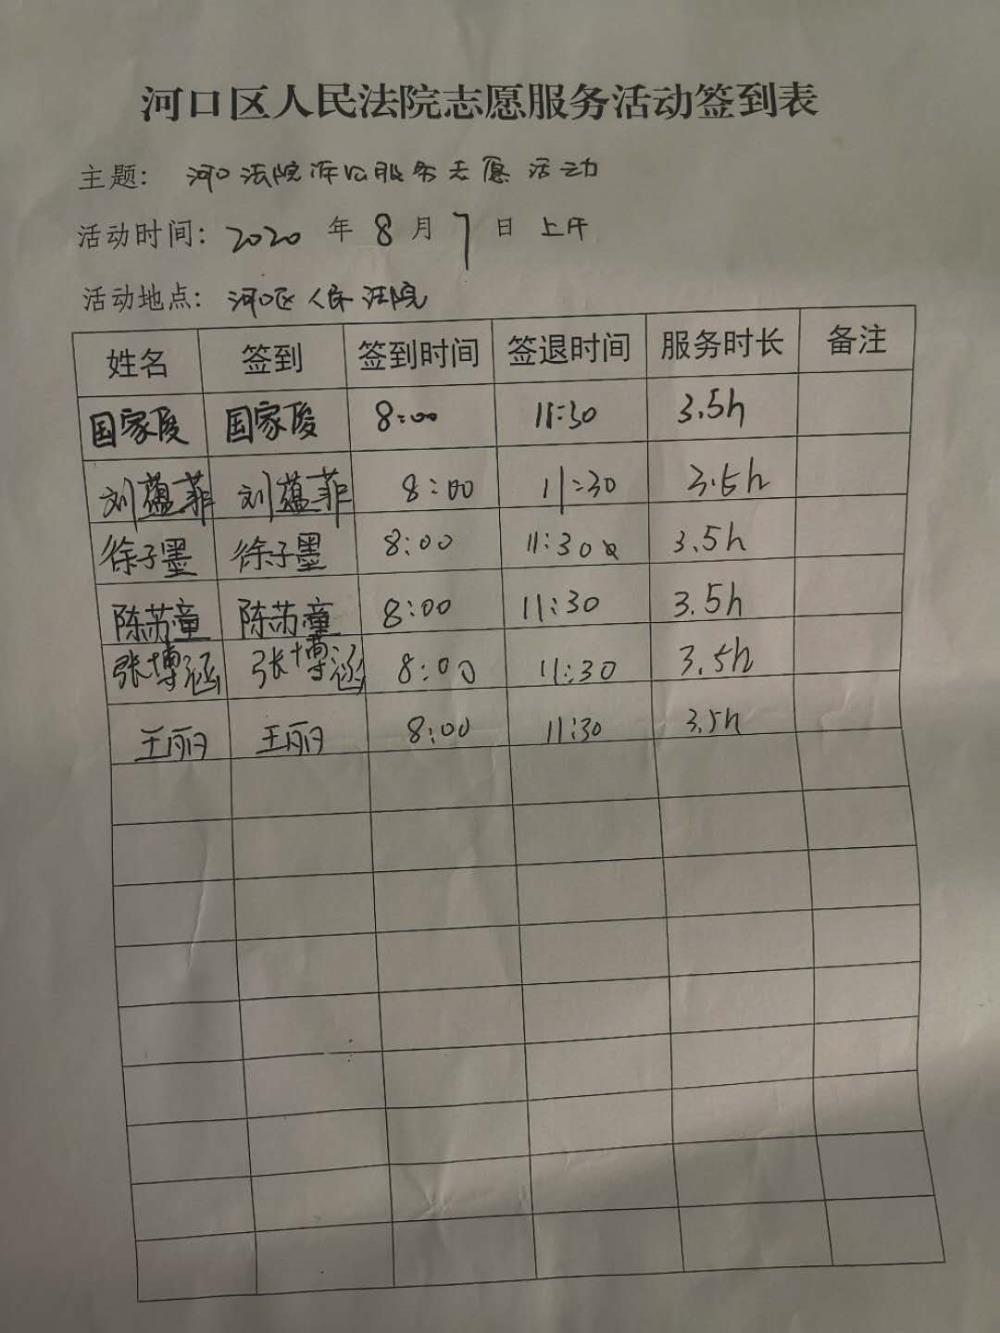 河口区人民法院志愿服务活动签到表
主题: 河口法院诉讼服务志愿活动
活动时间: 2020 年 8 月 7 日 上午
活动地点: 河口区人民法院
姓名 签到 签到时间 签退时间 服务时长 备注
国家俊 国家俊 8:00 11:30 3.5h
刘蕴菲 刘蕴菲 8:00 11:30 3.5h
徐子墨 徐子墨 8:00 11:30 3.5h
陈苏童 陈苏童 8:00 11:30 3.5h
张博涵 张博涵 8:00 11:30 3.5h
王丽 王丽 8:00 11:30 3.5h